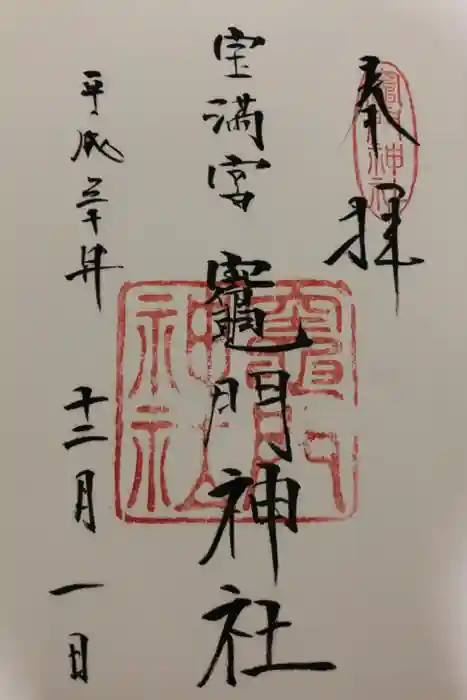 奉拝
竈門神社
宝満宮
竈門神社
竈門神社
平成三十年
十二月
一日